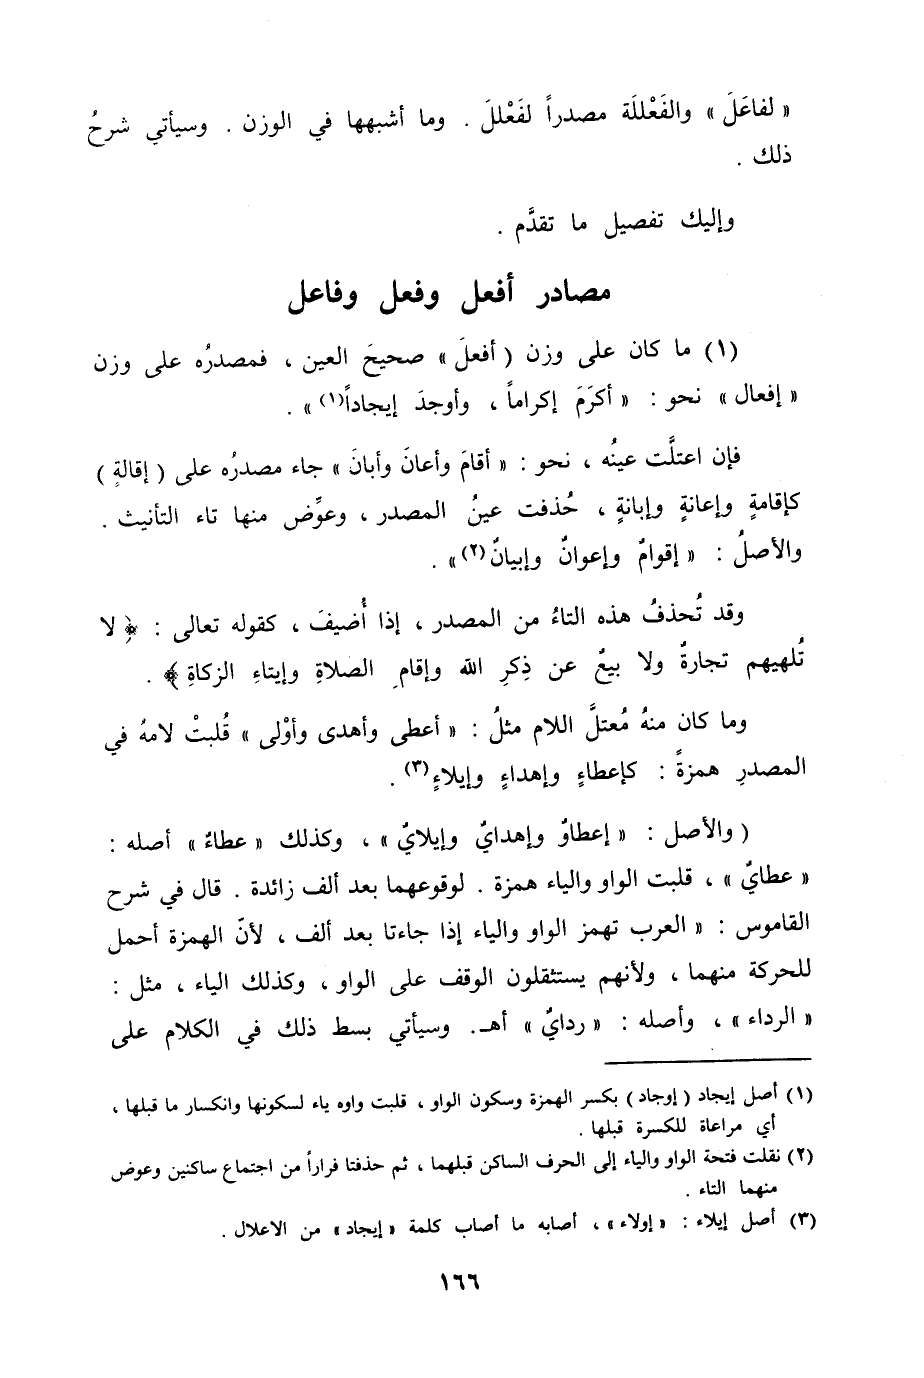 « لفاعَلَ » والفَعْللَة مصدراً لفَعْللَ . وما أشبهها في الوزن . وسيأتي شرحُ
ذلك .
وإليك تفصيل ما تقدَّم .
مصادر أفعل وفعل وفاعل
(١) ما كان على وزن ( أفعلَ » صحيحَ العين ، فمصدرُه على وزن
« إفعال » نحو : « أكرَمَ إكراماً ، وأوجدَ إيجاداً(١) » .
فإن اعتلَّت عينُه ، نحو : « أقامَ وأعانَ وأبانَ » جاء مصدرُه على ( إقالةٍ )
كإقامةٍ وإعانةٍ وإبانةٍ ، حُذفت عينُ المصدر ، وعوِّض منها تاء التأنيث .
والأصلُ : « إقوامٌ وإعوانٌ وإبيانٌ(٢) » .
وقد تُحذفُ هذه التاءُ من المصدر ، إذا أُضيفَ ، كقوله تعالى : ﴿ لا
تُلهيهم تجارةٌ ولا بيعٌ عن ذِكرِ الله وإقامِ الصلاةِ وإيتاءِ الزكاةِ ﴾ .
وما كان منهُ مُعتلَّ اللام مثلُ : « أعطى وأهدى وأوْلى » قُلبتْ لامهُ في
المصدرِ همزةً : كإعطاءٍ وإهداءٍ وإيلاءٍ(٣) .
( والأصل : « إعطاوٌ وإهدايٌ وإيلايٌ » ، وكذلك « عطاءٌ » أصله :
« عطايٌ » ، قلبت الواو والياء همزة . لوقوعهما بعد ألف زائدة . قال في شرح
القاموس : « العرب تهمز الواو والياء إذا جاءتا بعد ألف ، لأنّ الهمزة أحمل
للحركة منهما ، ولأنهم يستثقلون الوقف على الواو ، وكذلك الياء ، مثل :
« الرداء » ، وأصله : « ردايٌ » أهـ. وسيأتي بسط ذلك في الكلام على
(١) أصل إيجاد ( إوجاد ) بكسر الهمزة وسكون الواو ، قلبت واوه ياء لسكونها وانكسار ما قبلها ،
أي مراعاة للكسرة قبلها .
(٢) نقلت فتحة الواو والياء إلى الحرف الساكن قبلهما ، ثم حذفتا فراراً من اجتماع ساكنين وعوض
منهما التاء .
(٣) أصل إيلاء : « إولاء » ، أصابه ما أصاب كلمة « إيجاد » من الاعلال .
١٦٦